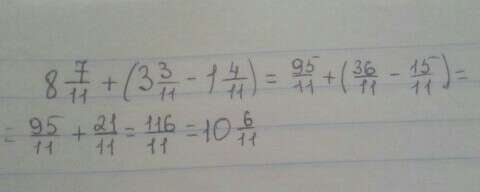 8 7/11 + (3 3/11 - 1 4/11) = 95/11 + (36/11 - 15/11) =
= 95/11 + 21/11 = 116/11 = 10 6/11